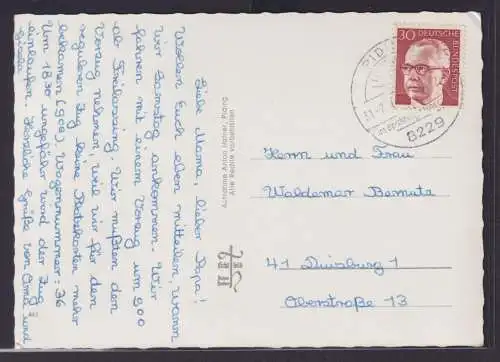 Liebe Mama, lieber Papa!
Wollen Euch eben mitteilen, wann
wir Samstag ankommen. Wir
fahren mit einem Vorzug um 900
ab Freilassing. Wir mußten den
Vorzug nehmen, weil wir für den
regulären Zug keine Platzkarten mehr
bekamen (908). Wagennummer: 36
Um 1830 ungefähr wird der Zug
einlaufen. Herzliche Grüße von Omi und
Gisela
Aufnahme Anton Hafner, Piding
Alle Rechte vorbehalten
30
DEUTSCHE
BUNDESPOST
PID
8229
Herrn und Frau
Waldemar Bemuta
41 Duisburg 1
Oberstraße 13